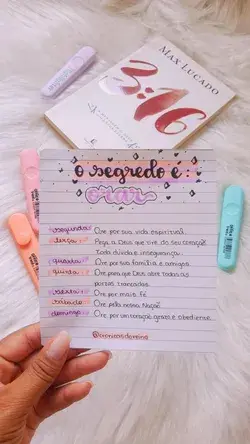 MAX LUCADO
3:16
o segredo é:
orar
segunda: Ore por sua vida espiritual.
terça: Peça a Deus que tire do seu coração
Toda dúvida e insegurança.
quarta: Ore por sua família e amigos
quinta: Ore para que Deus abra todas as
portas trancadas.
sexta: Ore por mais fé
sábado: Ore pela nossa Nação
domingo: Ore por um coração grato e obediente.